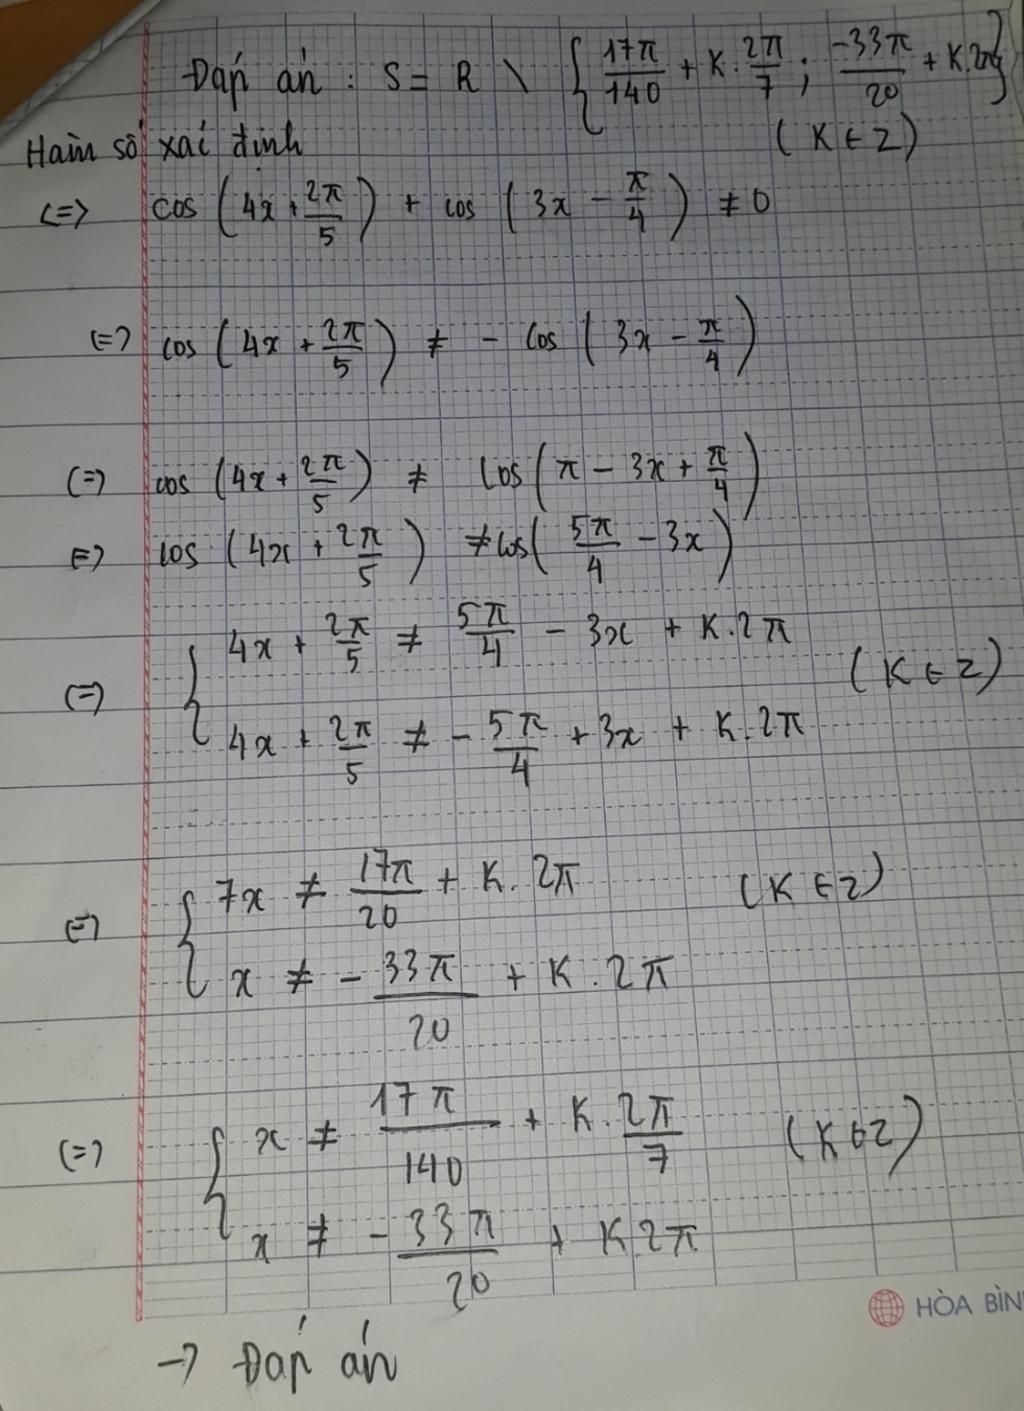 Đáp án : S = R \ { 17π/140 + K. 2π/7 ; -33π/20 + K.2π }
(K ∈ Z)
Hàm số xác định
(=> cos (4x + 2π/5) + cos (3x - π/4) ≠ 0
(=> cos (4x + 2π/5) ≠ - cos (3x - π/4)
(=) cos (4x + 2π/5) ≠ cos (π - 3x + π/4)
(=) cos (4x + 2π/5) ≠ cos (5π/4 - 3x)
4x + 2π/5 ≠ 5π/4 - 3x + K.2π
(=) { (K ∈ Z)
4x + 2π/5 ≠ - 5π/4 + 3x + K.2π
7x ≠ 17π/20 + K. 2π (K ∈ Z)
(=) {
x ≠ - 33π/20 + K. 2π
(=) { x ≠ 17π/140 + K. 2π/7 (K ∈ Z)
x ≠ - 33π/20 + K2π
HÒA BÌN
-> Đáp án